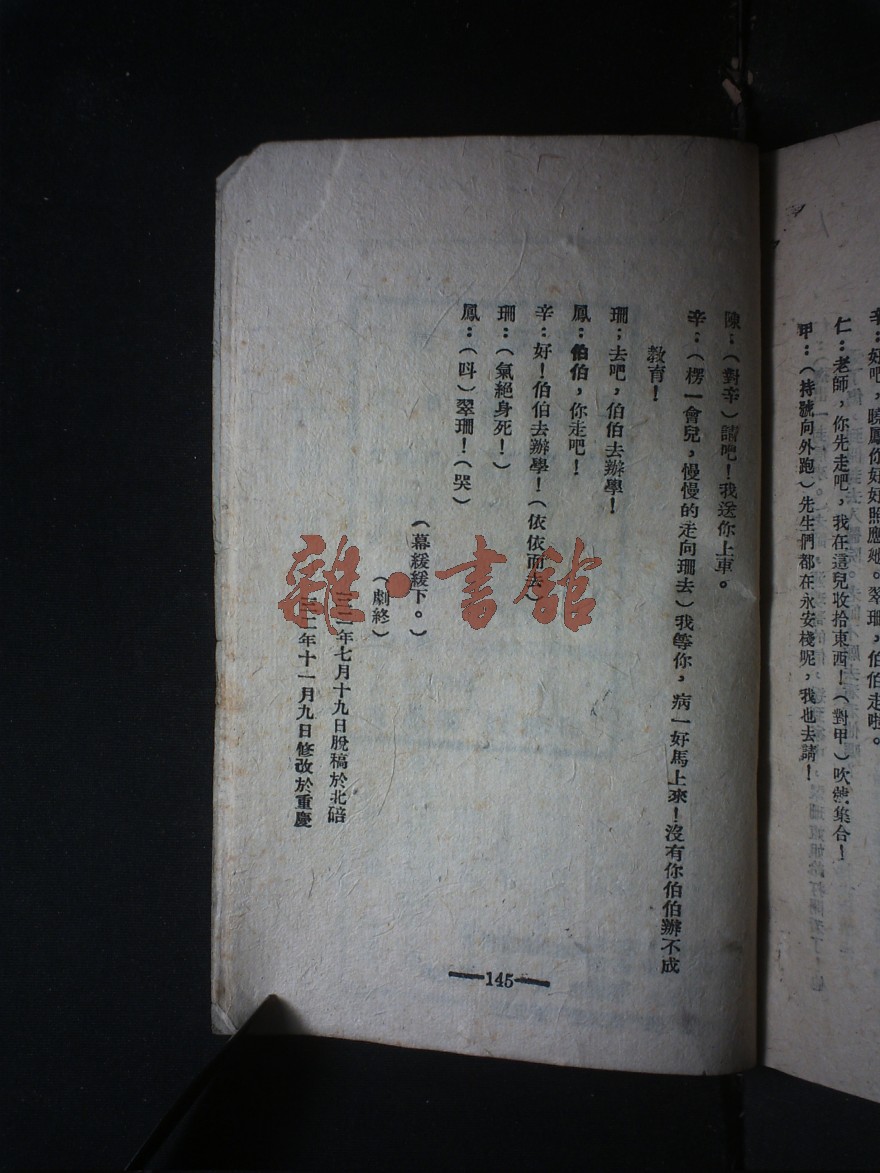 辛：好吧，曉鳳你好好照應她。翠珊，伯伯走啦。
仁：老師，你先走吧，我在這兒收拾東西！（對甲）吹號集合！
甲：（持號向外跑）先生們都在永安棧呢，我也去請！
陳：（對辛）請吧！我送你上車。
辛：（楞一會兒，慢慢的走向珊去）我等你，病一好馬上來！沒有你伯伯辦不成
教育！
珊；去吧，伯伯去辦學！
鳳：伯伯，你走吧！
辛：好！伯伯去辦學！（依依而去）
珊：（氣絕身死！）
鳳：（呌）翠珊！（哭）
（幕緩緩下。）
（劇終）
年七月十九日脫稿於北碚
年十一月九日修改於重慶
145
雜·書館